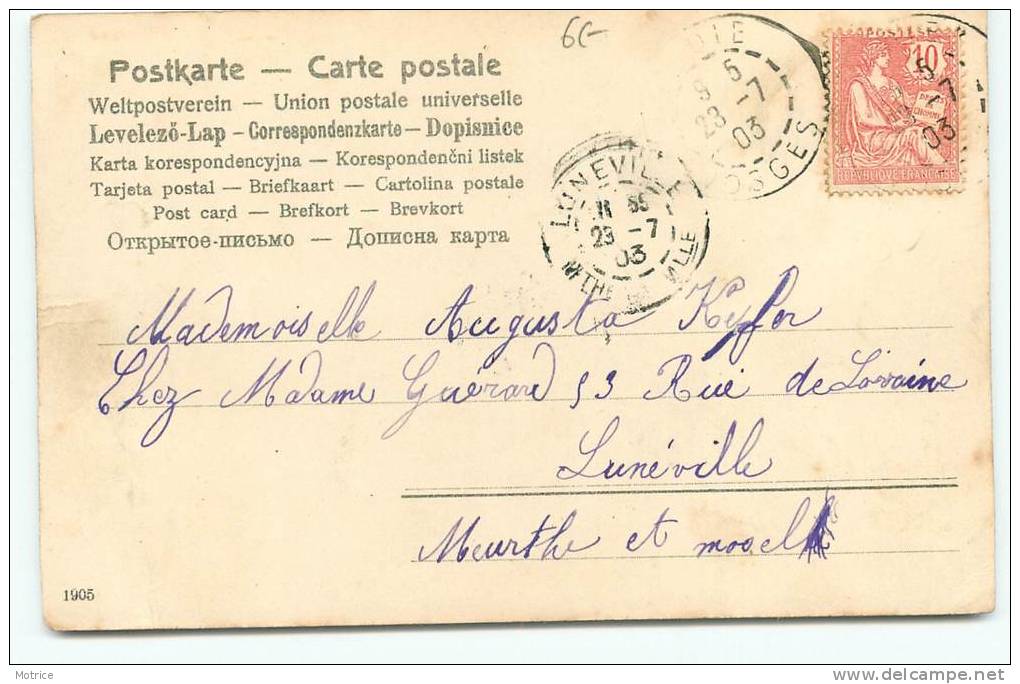 6-
Postkarte — Carte postale
Weltpostverein — Union postale universelle
Levelező-Lap – Correspondenzkarte – Dopisnice
Karta korespondencyjna — Korespondenčni listek
Tarjeta postal — Briefkaart — Cartolina postale
Post card — Brefkort — Brevkort
Открытое-письмо — Дописна карта
DIE
5
23 -7
03
VOSGES
POSTES
10
DROITS DE L'HOMME
REPVBLIQVE FRANÇAISE
5
-7
03
LUNEVILLE
23 -7
03
MTHE
Mademoiselle Augusta Kefer
Chez Madame Guérard 53 Rue de Lorraine
Lunéville
Meurthe et mosell
1905
Motrice
http://www.delcampe.net